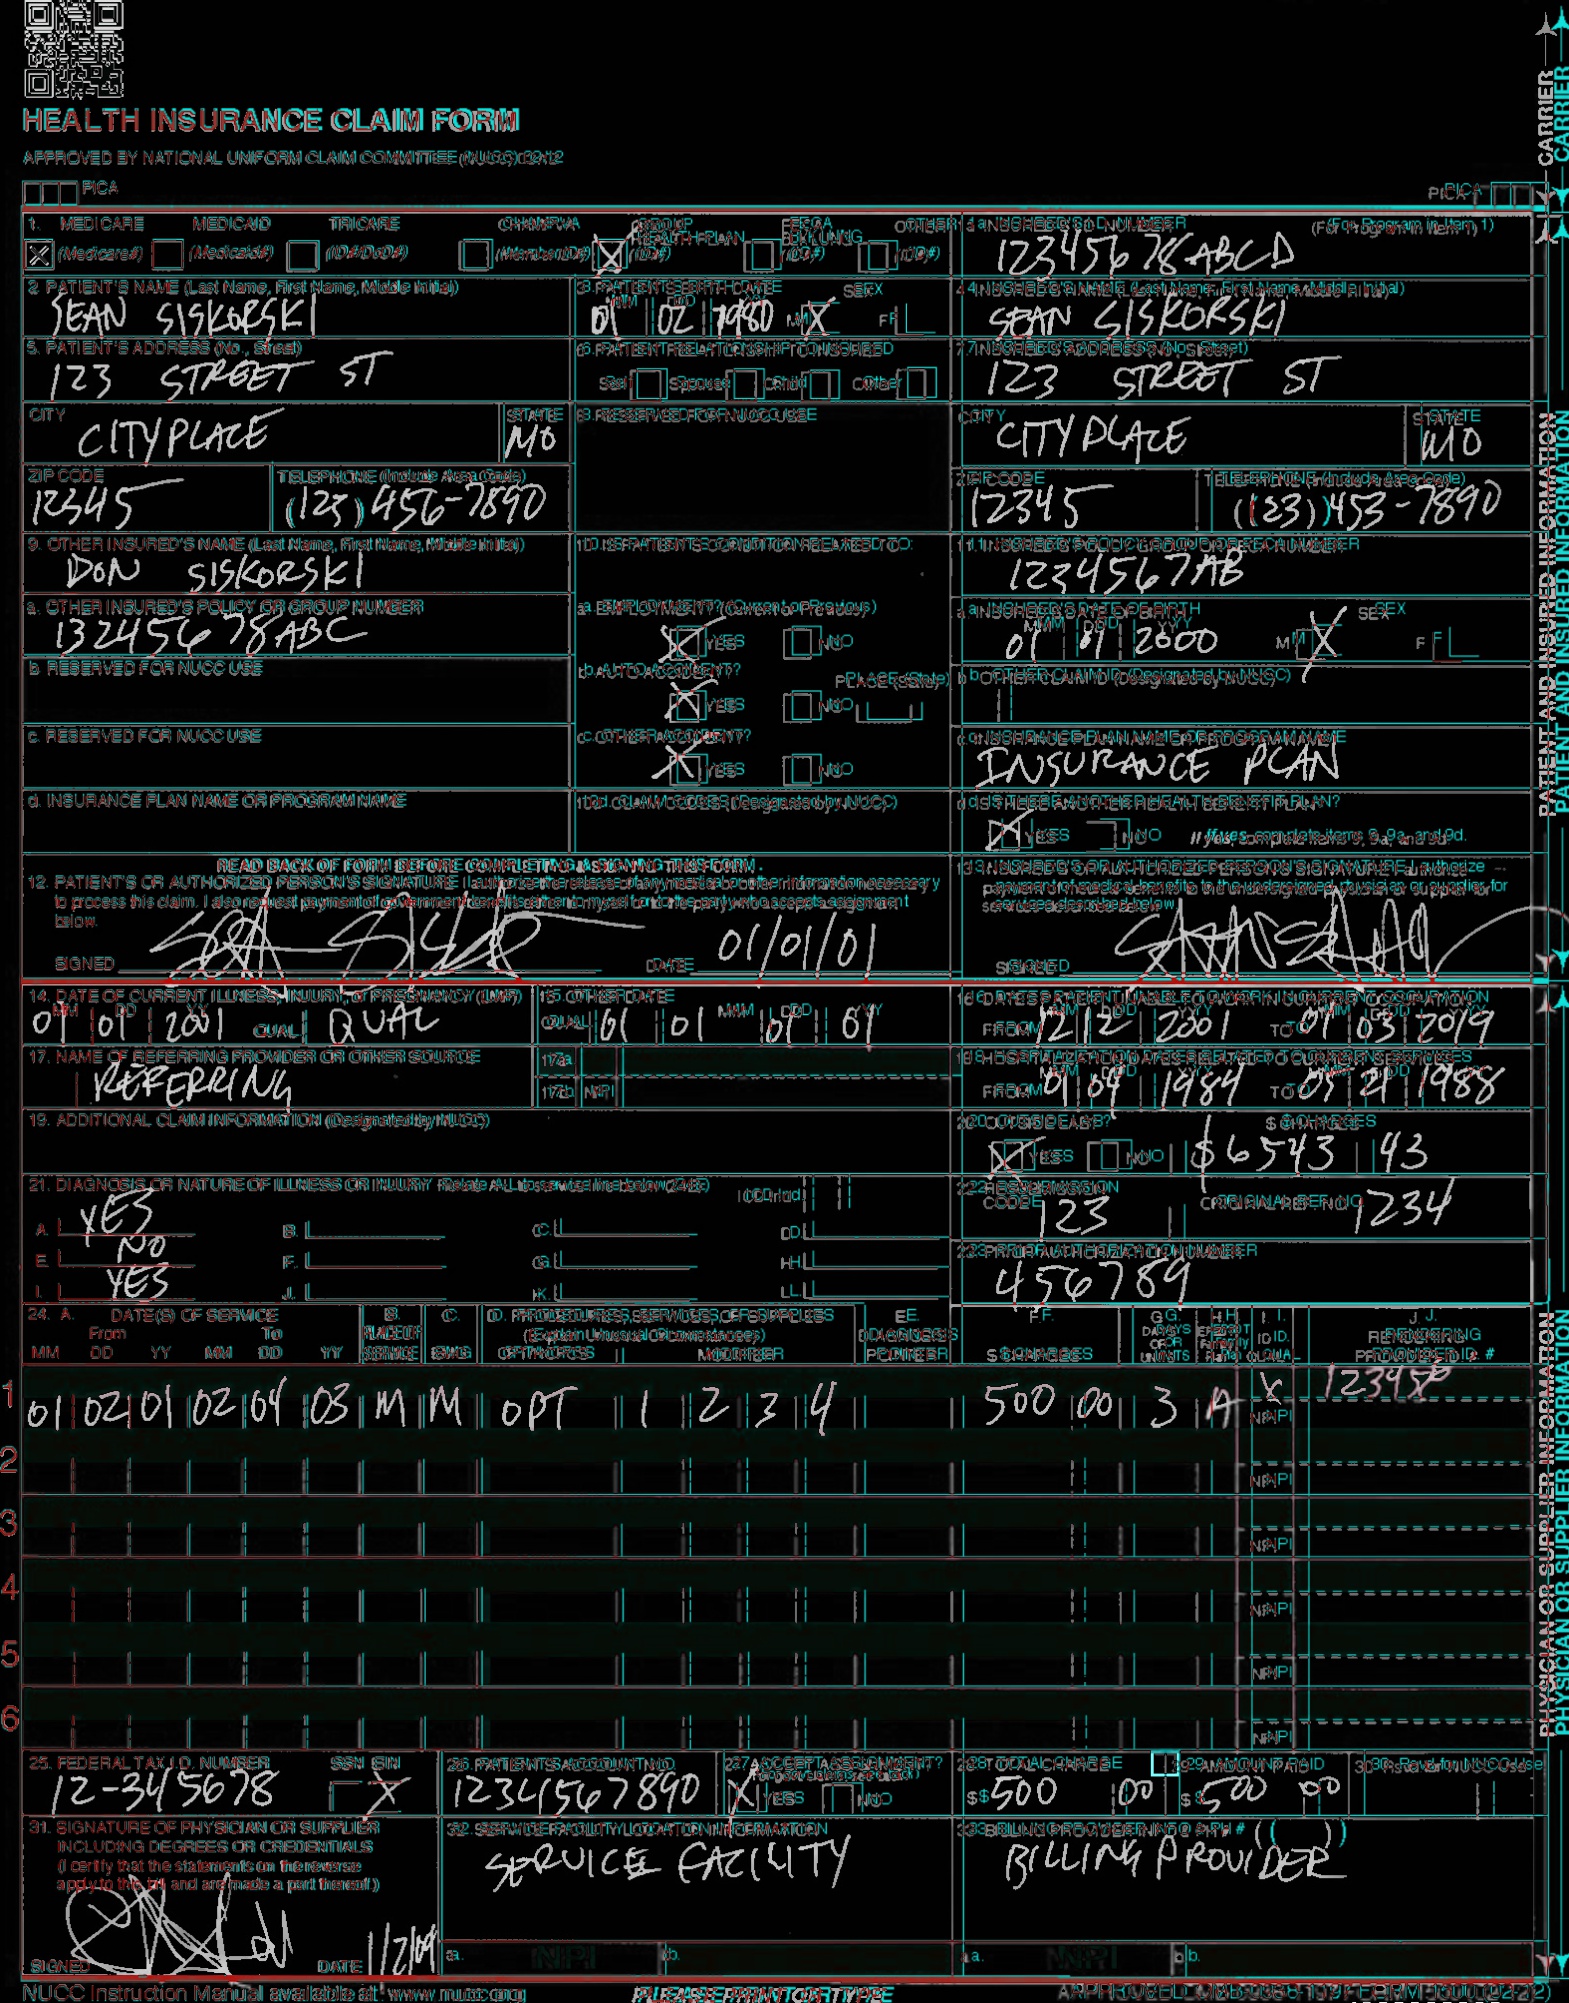 HEALTH INSURANCE CLAIM FORM
APPROVED BY NATIONAL UNIFORM CLAIM COMMITTEE (NUCC) 02/12
PICA
PICA
CARRIER
1. MEDICARE MEDICAID TRICARE CHAMPVA GROUP HEALTH PLAN FECA BLK LUNG OTHER
(Medicare#) (Medicaid#) (ID#/DoD#) (Member ID#) (ID#) (ID#) (ID#)
1a. INSURED'S I.D. NUMBER (For Program in Item 1)
12345678ABCD
2. PATIENT'S NAME (Last Name, First Name, Middle Initial)
SEAN SISKORSKI
3. PATIENT'S BIRTH DATE SEX
MM DD YY
01 02 1980 M X F
4. INSURED'S NAME (Last Name, First Name, Middle Initial)
SEAN SISKORSKI
5. PATIENT'S ADDRESS (No., Street)
123 STREET ST
6. PATIENT RELATIONSHIP TO INSURED
Self Spouse Child Other
7. INSURED'S ADDRESS (No., Street)
123 STREET ST
CITY STATE
CITYPLACE MO
8. RESERVED FOR NUCC USE
CITY STATE
CITYPLACE MO
ZIP CODE TELEPHONE (Include Area Code)
12345 (123) 456-7890
ZIP CODE TELEPHONE (Include Area Code)
12345 (123) 453-7890
9. OTHER INSURED'S NAME (Last Name, First Name, Middle Initial)
DON SISKORSKI
10. IS PATIENT'S CONDITION RELATED TO:
11. INSURED'S POLICY GROUP OR FECA NUMBER
1234567AB
a. OTHER INSURED'S POLICY OR GROUP NUMBER
13245678ABC
a. EMPLOYMENT? (Current or Previous)
YES NO
a. INSURED'S DATE OF BIRTH SEX
MM DD YY
01 01 2000 M X F
b. RESERVED FOR NUCC USE
b. AUTO ACCIDENT? PLACE (State)
YES NO
b. OTHER CLAIM ID (Designated by NUCC)
c. RESERVED FOR NUCC USE
c. OTHER ACCIDENT?
YES NO
c. INSURANCE PLAN NAME OR PROGRAM NAME
INSURANCE PLAN
d. INSURANCE PLAN NAME OR PROGRAM NAME
10d. CLAIM CODES (Designated by NUCC)
d. IS THERE ANOTHER HEALTH BENEFIT PLAN?
YES NO If yes, complete items 9, 9a, and 9d.
READ BACK OF FORM BEFORE COMPLETING & SIGNING THIS FORM.
12. PATIENT'S OR AUTHORIZED PERSON'S SIGNATURE I authorize the release of any medical or other information necessary
to process this claim. I also request payment of government benefits either to myself or to the party who accepts assignment
below.
SIGNED DATE 01/01/01
13. INSURED'S OR AUTHORIZED PERSON'S SIGNATURE I authorize
payment of medical benefits to the undersigned physician or supplier for
services described below.
SIGNED
PATIENT AND INSURED INFORMATION
14. DATE OF CURRENT ILLNESS, INJURY, or PREGNANCY (LMP)
MM DD YY
01 01 2001 QUAL. QUAL
15. OTHER DATE
MM DD YY
QUAL. 01 01 01 01
16. DATES PATIENT UNABLE TO WORK IN CURRENT OCCUPATION
FROM 12 12 2001 TO 01 03 2019
17. NAME OF REFERRING PROVIDER OR OTHER SOURCE
REFERRING
17a.
17b. NPI
18. HOSPITALIZATION DATES RELATED TO CURRENT SERVICES
FROM 01 04 1984 TO 05 21 1988
19. ADDITIONAL CLAIM INFORMATION (Designated by NUCC)
20. OUTSIDE LAB? $ CHARGES
YES NO $6543 43
21. DIAGNOSIS OR NATURE OF ILLNESS OR INJURY Relate A-L to service line below (24E) ICD Ind.
A. YES B. C. D.
E. NO F. G. H.
I. YES J. K. L.
22. RESUBMISSION CODE ORIGINAL REF. NO.
123 1234
23. PRIOR AUTHORIZATION NUMBER
456789
24. A. DATE(S) OF SERVICE B. C. D. PROCEDURES, SERVICES, OR SUPPLIES E. F. G. H. I. J.
From To PLACE OF SERVICE EMG (Explain Unusual Circumstances) DIAGNOSIS POINTER $ CHARGES DAYS OR UNITS EPSDT Family Plan ID. QUAL. RENDERING PROVIDER ID. #
MM DD YY MM DD YY CPT/HCPCS MODIFIER
1 01 02 01 02 04 03 M M OPT 1 2 3 4 500 00 3 A X
NPI
2 NPI
3 NPI
4 NPI
5 NPI
6 NPI
PHYSICIAN OR SUPPLIER INFORMATION
25. FEDERAL TAX I.D. NUMBER SSN EIN
12-345678 X
26. PATIENT'S ACCOUNT NO.
1234567890
27. ACCEPT ASSIGNMENT?
X YES NO
28. TOTAL CHARGE
$ 500 00
29. AMOUNT PAID
$ 500 00
30. Rsvd for NUCC Use
31. SIGNATURE OF PHYSICIAN OR SUPPLIER
INCLUDING DEGREES OR CREDENTIALS
(I certify that the statements on the reverse
apply to this bill and are made a part thereof.)
SIGNED DATE 1/2/09
32. SERVICE FACILITY LOCATION INFORMATION
SERVICE FACILITY
a. NPI b.
33. BILLING PROVIDER INFO & PH # ( )
BILLING PROVIDER
a. NPI b.
NUCC Instruction Manual available at: www.nucc.org
PLEASE PRINT OR TYPE
APPROVED OMB-0938-1197 FORM 1500 (02-12)